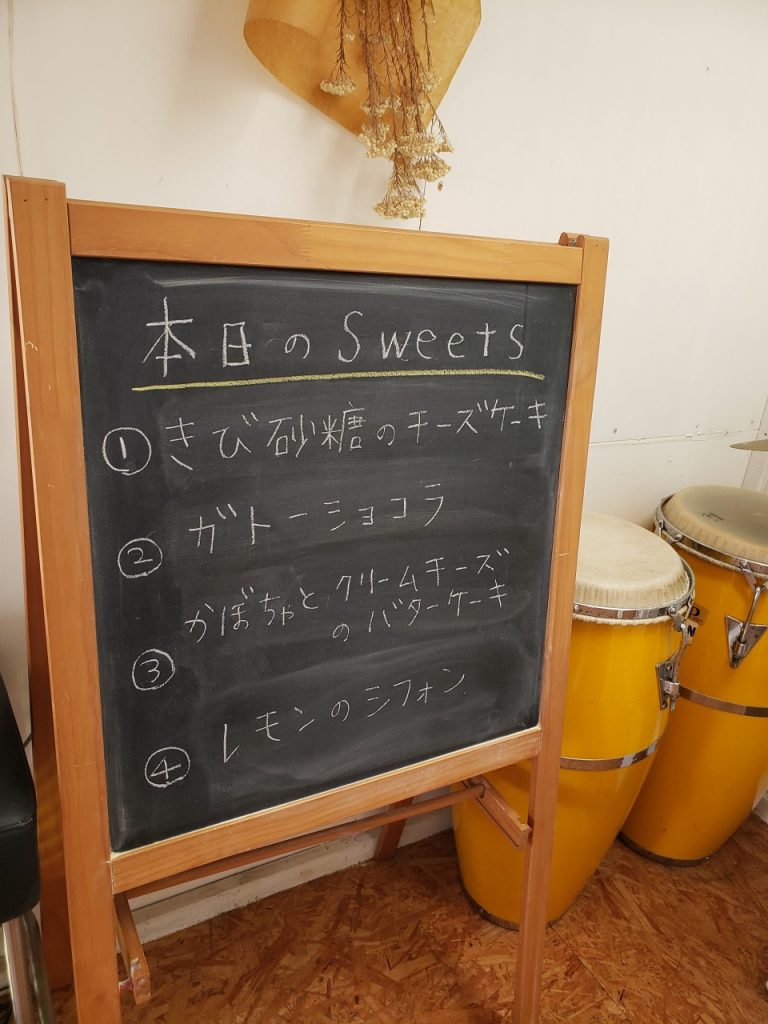 本日のSweets
① きび砂糖のチーズケーキ
② ガトーショコラ
③ かぼちゃとクリームチーズ
のバターケーキ
④ レモンのシフォン